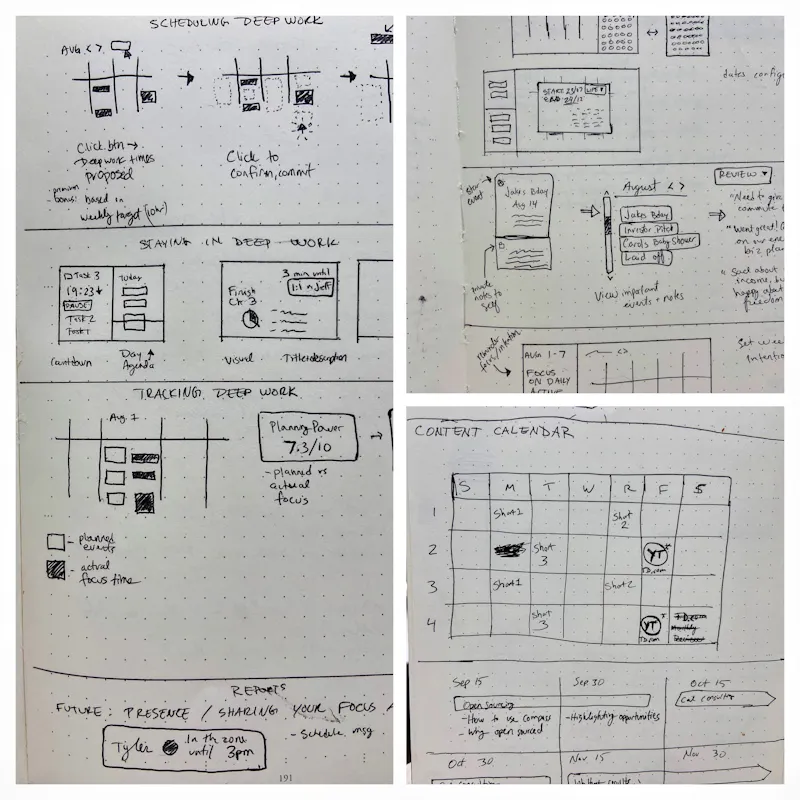 SCHEDULING DEEP WORK
AUG < >
Click btn →
Deep work times
proposed
premium
bonus: based in
weekly target (10hr)
Click to
confirm, commit
STAYING IN DEEP WORK
Task 3
19:23
PAUSE
Task 2
Task 1
Today
Countdown
Day
Agenda
Finish
Ch. 3
3 min until
1:1 w Jeff
Visual
Title+description
TRACKING DEEP WORK
Aug 7
Planning Power
7.3/10
- planned vs
actual
focus
- planned
events
- actual
focus time
REPORTS
FUTURE: PRESENCE / SHARING YOUR FOCUS /
Tyler
In the zone
until 3pm
- Schedule msg
191
dates config
START 23/17
END 24/12
Star
event
Jakes Bday
Aug 14
private
notes to
self
August < >
Jakes Bday
Investor Pitch
Carol's Baby Shower
Laid off
View important
events + notes
REVIEW
"Need to give
commute t
"Went great! G
on our ene
biz pla
"Sad about
income, bu
happy abou
freedom
AUG 1-7
< >
FOCUS
ON DAILY
ACTIVE
Set wee
Intentio
CONTENT CALENDAR
S M T W R F S
1 Shot 1 Shot 2
2 Shot 3 YT
3 Shot 1 Shot 2
4 Shot 3 YT
Sep 15
Open Sourcing
- How to use compass
- Why open sourced
Sep 30
- Highlighting opportunities
Oct 15
Oct 30
Nov 15
Nov 30